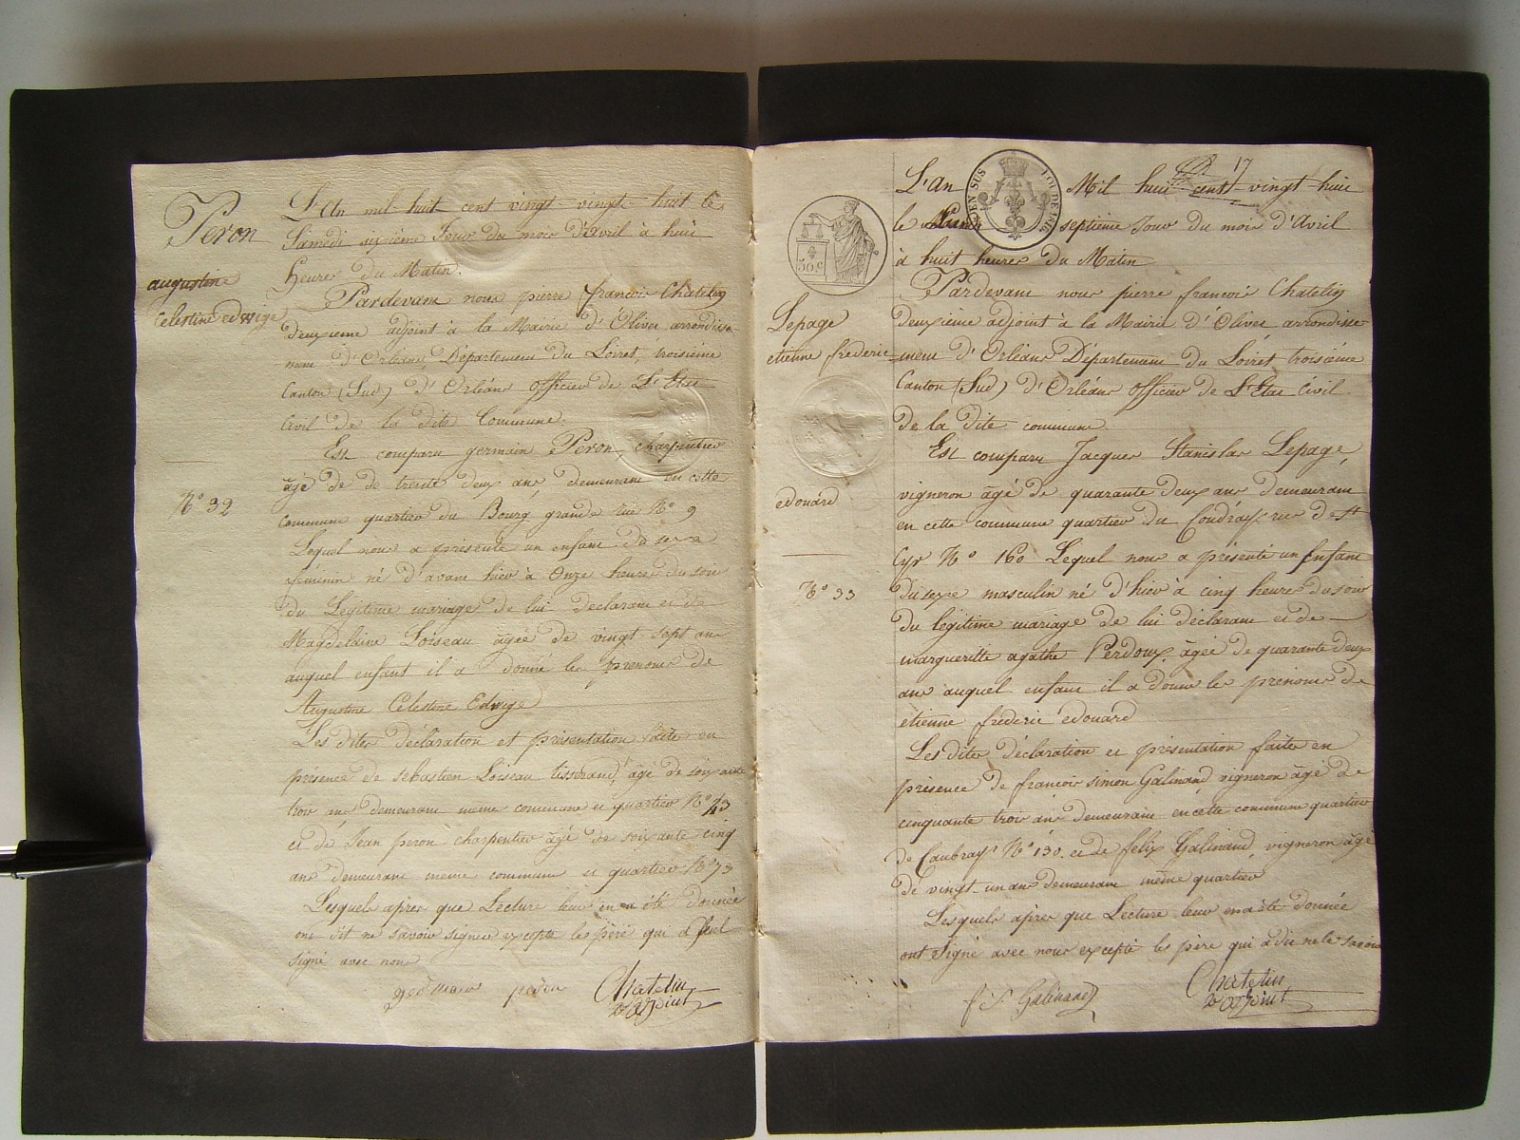 Peron
augustine
Celestine edwige
N.o 32
L'An mil huit cent vingt vingt-huit le
Samedi sixième Jour du mois d'avril à huit
heures du Matin.
Pardevant nous pierre françois Chatelin
deuxieme adjoint à la Mairie d'Olivet arrondisse-
ment d'Orléans Département du Loiret, troisième
Canton (Sud) d'Orléans officier de L'Etat
Civil de la dite Commune.
Est comparu germain Peron, charpentier
âgé de de trente deux ans, demeurant en cette
commune quartier du Bourg grande rue N.o 9
Lequel nous a présenté un enfant du sexe
féminin né d'avant hier à Onze heures du soir
du Légitime mariage de lui déclarant et de
Magdelaine Loiseau âgée de vingt sept ans
auquel enfant il a donné les prenoms de
Augustine Célestine Edwige
Les dites déclaration et présentation faites en
presence de sebastien Loiseau tisserand âgé de soixante
trois ans demeurant meme commune et quartier N.o 43
et de Jean peron charpentier âgé de soixante cinq
ans demeurant meme commune et quartier N.o 73
Lesquels après que Lecture leur en a été donnée
ont dit ne savoir signer excepté les père qui a seul
signé avec nous
germain peron Chatelin
adjoint
17
L'An Mil huit cent vingt-huit
le septième Jour du mois d'Avril
à huit heures du Matin
DIEN SUS LOI DE 1816
50 c
Lepage
etienne frederic
edouard
N.o 33
Pardevant nous pierre françois Chatelin
deuxième adjoint à la Mairie d'Olivet arrondisse-
ment d'Orléans Département du Loiret troisième
Canton (Sud) d'Orléans officier de L'Etat Civil
de la dite commune.
Est comparu Jacques Stanislas Lepage,
vigneron âgé de quarante deux ans demeurant
en cette commune quartier du Coudray rue de st
Cyr N.o 160 Lequel nous a présenté un Enfant
du sexe masculin né d'hier à cinq heures du soir
du légitime mariage de lui déclarant et de
margueritte agathe Perdoux, âgée de quarante deux
ans auquel enfant il a donné les prénoms de
etienne frederic edouard
Les dites déclaration et présentation faites en
présence de francois simon Galinand vigneron âgé de
cinquante trois ans demeurant en cette commune quartier
de Caubray N.o 130. et de felix Galinand vigneron âgé
de vingt-un ans demeurant même quartier
Lesquels après que Lecture leur en a été donnée
ont signé avec nous excepté les père qui a dit ne le savoir
f. S. Galinand Chatelin
adjoint